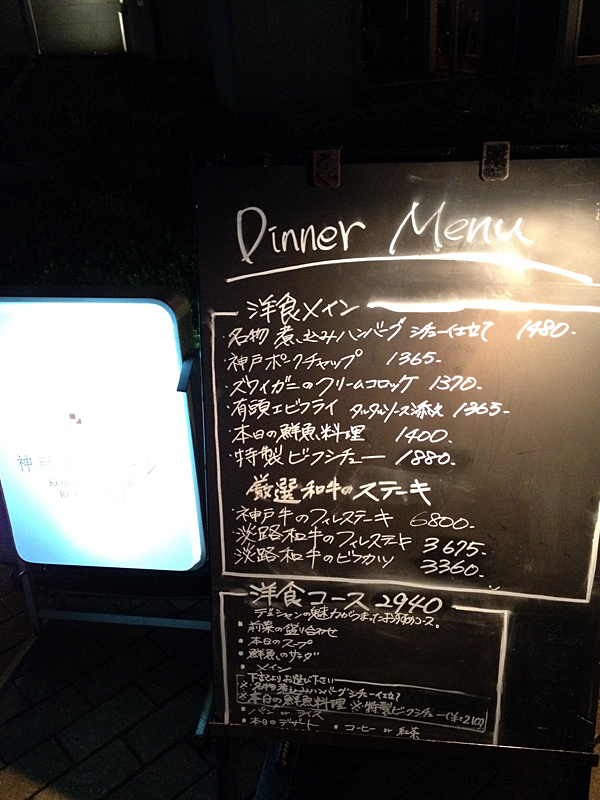 Dinner Menu
洋食メイン
・名物 煮込みハンバーグ シチュー仕立て 1480-
・神戸ポークチャップ 1365-
・ズワイガニのクリームコロッケ 1370-
・有頭エビフライ タルタルソース添え 1365-
・本日の鮮魚料理 1400-
・特製ビーフシチュー 1880-
厳選和牛のステーキ
・神戸牛のフィレステーキ 6800-
淡路和牛のフィレステーキ 3675-
淡路和牛のビフカツ 3360-
洋食コース 2940
前菜の盛り合わせ
本日のスープ
鮮魚のサラダ
メイン
下記よりお選び下さい
※名物煮込みハンバーグシチュー仕立て
※本日の鮮魚料理 ※特製ビーフシチュー(+210)
パン or ライス
本日のデザート ・コーヒー or 紅茶
神戸